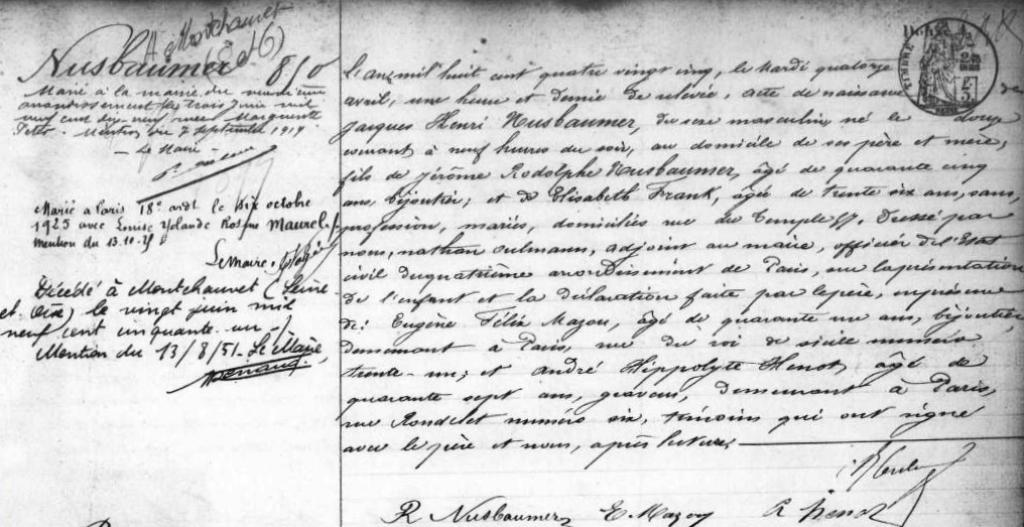 A Montchauvet
(S et O)
Nusbaumer
810
Marié à la mairie du
arrondissement le trois juin mil
neuf cent dix neuf avec Marguerite
Petit. Mention du 7 septembre 1919
- Le Maire -
Marié à Paris 18e ardt le dix octobre
1925 avec Louise Yolande Rosine Maurel
mention du 13.10.25
Le Maire.
Décédé à Montchauvet (Seine
et Oise) le vingt juin mil
neuf cent cinquante un
Mention du 13/8/51. Le Maire,
TIMBRE
L'an mil huit cent quatre vingt cinq, le Mardi quatorze
avril, une heure et demie de relevée, acte de naissance de
Jacques Henri Nusbaumer, du sexe masculin né le douze
courant à neuf heures du soir, au domicile de ses père et mère,
fils de Jérôme Rodolphe Nusbaumer, âgé de quarante cinq
ans, bijoutier, et de Elisabeth Frank, âgée de trente six ans, sans
profession, mariés, domiciliés rue du Temple. Dressé par
nous, nathan oulmann, adjoint au maire, officier de l'Etat
civil du quatrième arrondissement de Paris, sur la présentation
de l'enfant et la déclaration faite par le père, en présence
de: Eugène Félix Mazou, âgé de quarante un ans, bijoutier,
demeurant à Paris, rue du roi de sicile numéro
trente-un; et andré Hippolyte Henot, âgé de
quarante sept ans, graveur, demeurant à Paris,
rue Rondelet numéro six, témoins qui ont signé
avec le père et nous, après lecture.
R Nusbaumer E. Mazou A Henot